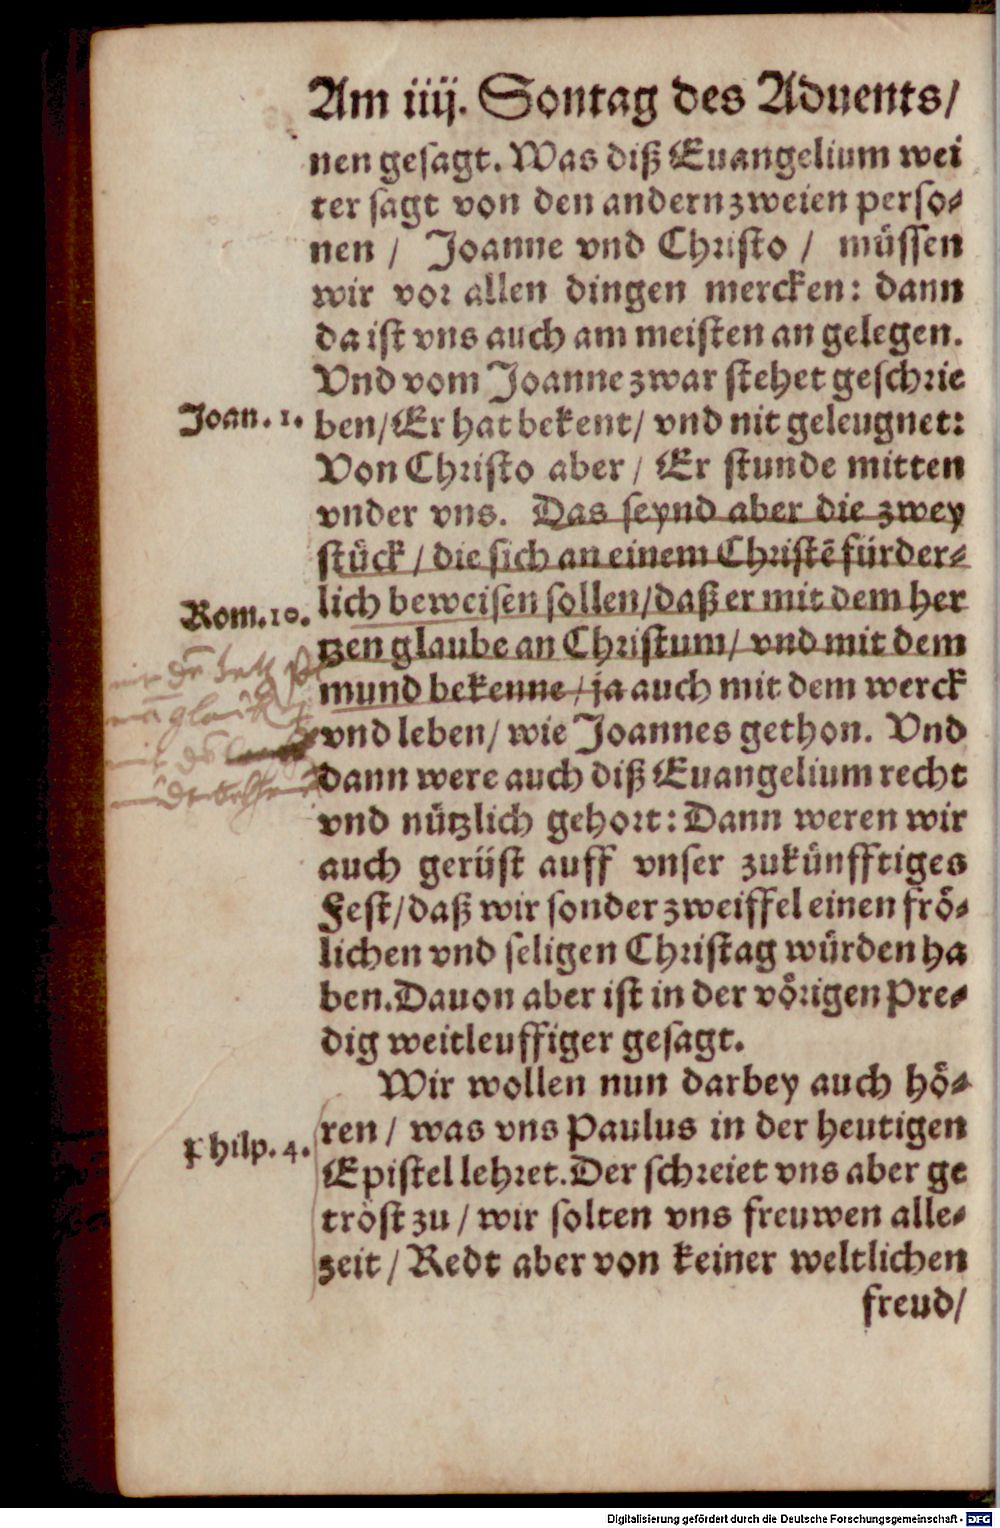 Am iiij. Sontag des Aduents/
nen gesagt. Was diß Euangelium wei
ter sagt von den andern zweien perso-
nen / Joanne vnd Christo / müssen
wir vor allen dingen mercken: dann
da ist vns auch am meisten an gelegen.
Vnd vom Joanne zwar stehet geschrie
Joan. 1.
ben/ Er hat bekent/ vnd nit geleugnet:
Von Christo aber / Er stunde mitten
vnder vns. Das seynd aber die zwey
stück / die sich an einem Christē fürder-
Rom. 10.
lich beweisen sollen/ daß er mit dem her
tzen glaube an Christum/ vnd mit dem
mund bekenne / ja auch mit dem werck
vnd leben/ wie Joannes gethon. Vnd
dann were auch diß Euangelium recht
vnd nützlich gehort: Dann weren wir
auch gerüst auff vnser zukünfftiges
Fest/ daß wir sonder zweiffel einen frö-
lichen vnd seligen Christag würden ha
ben. Dauon aber ist in der vörigen Pre-
dig weitleuffiger gesagt.
Wir wollen nun darbey auch hö-
ren / was vns Paulus in der heutigen
Philp. 4.
Epistel lehret. Der schreiet vns aber ge
tröst zu / wir solten vns freuwen alle-
zeit / Redt aber von keiner weltlichen
freud/
Digitalisierung gefördert durch die Deutsche Forschungsgemeinschaft - DFG